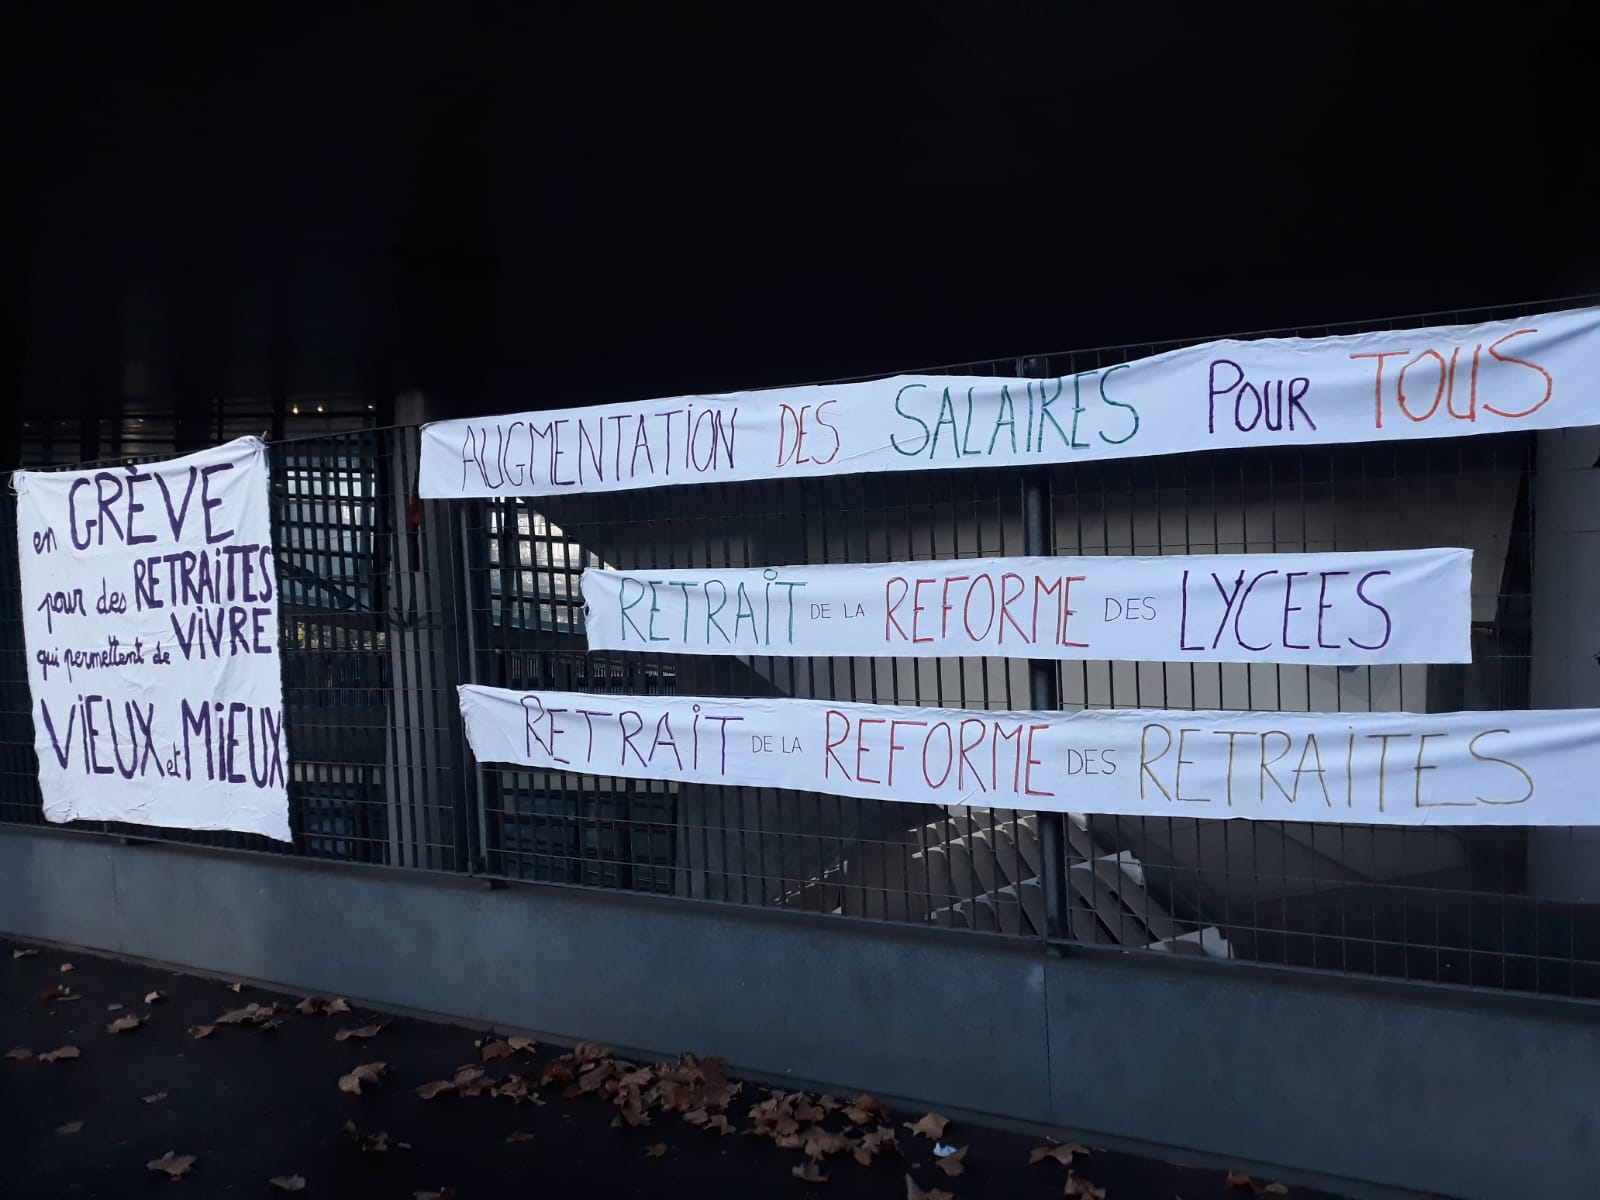 en GRÈVE
pour des RETRAiTES
qui permettent de ViVRE
ViEUX et MiEUX
AUGMENTATiON DES SALAIRES POUR TOUS
RETRAiT DE LA REFORME DES LYCEES
RETRAiT DE LA REFORME DES RETRAiTES